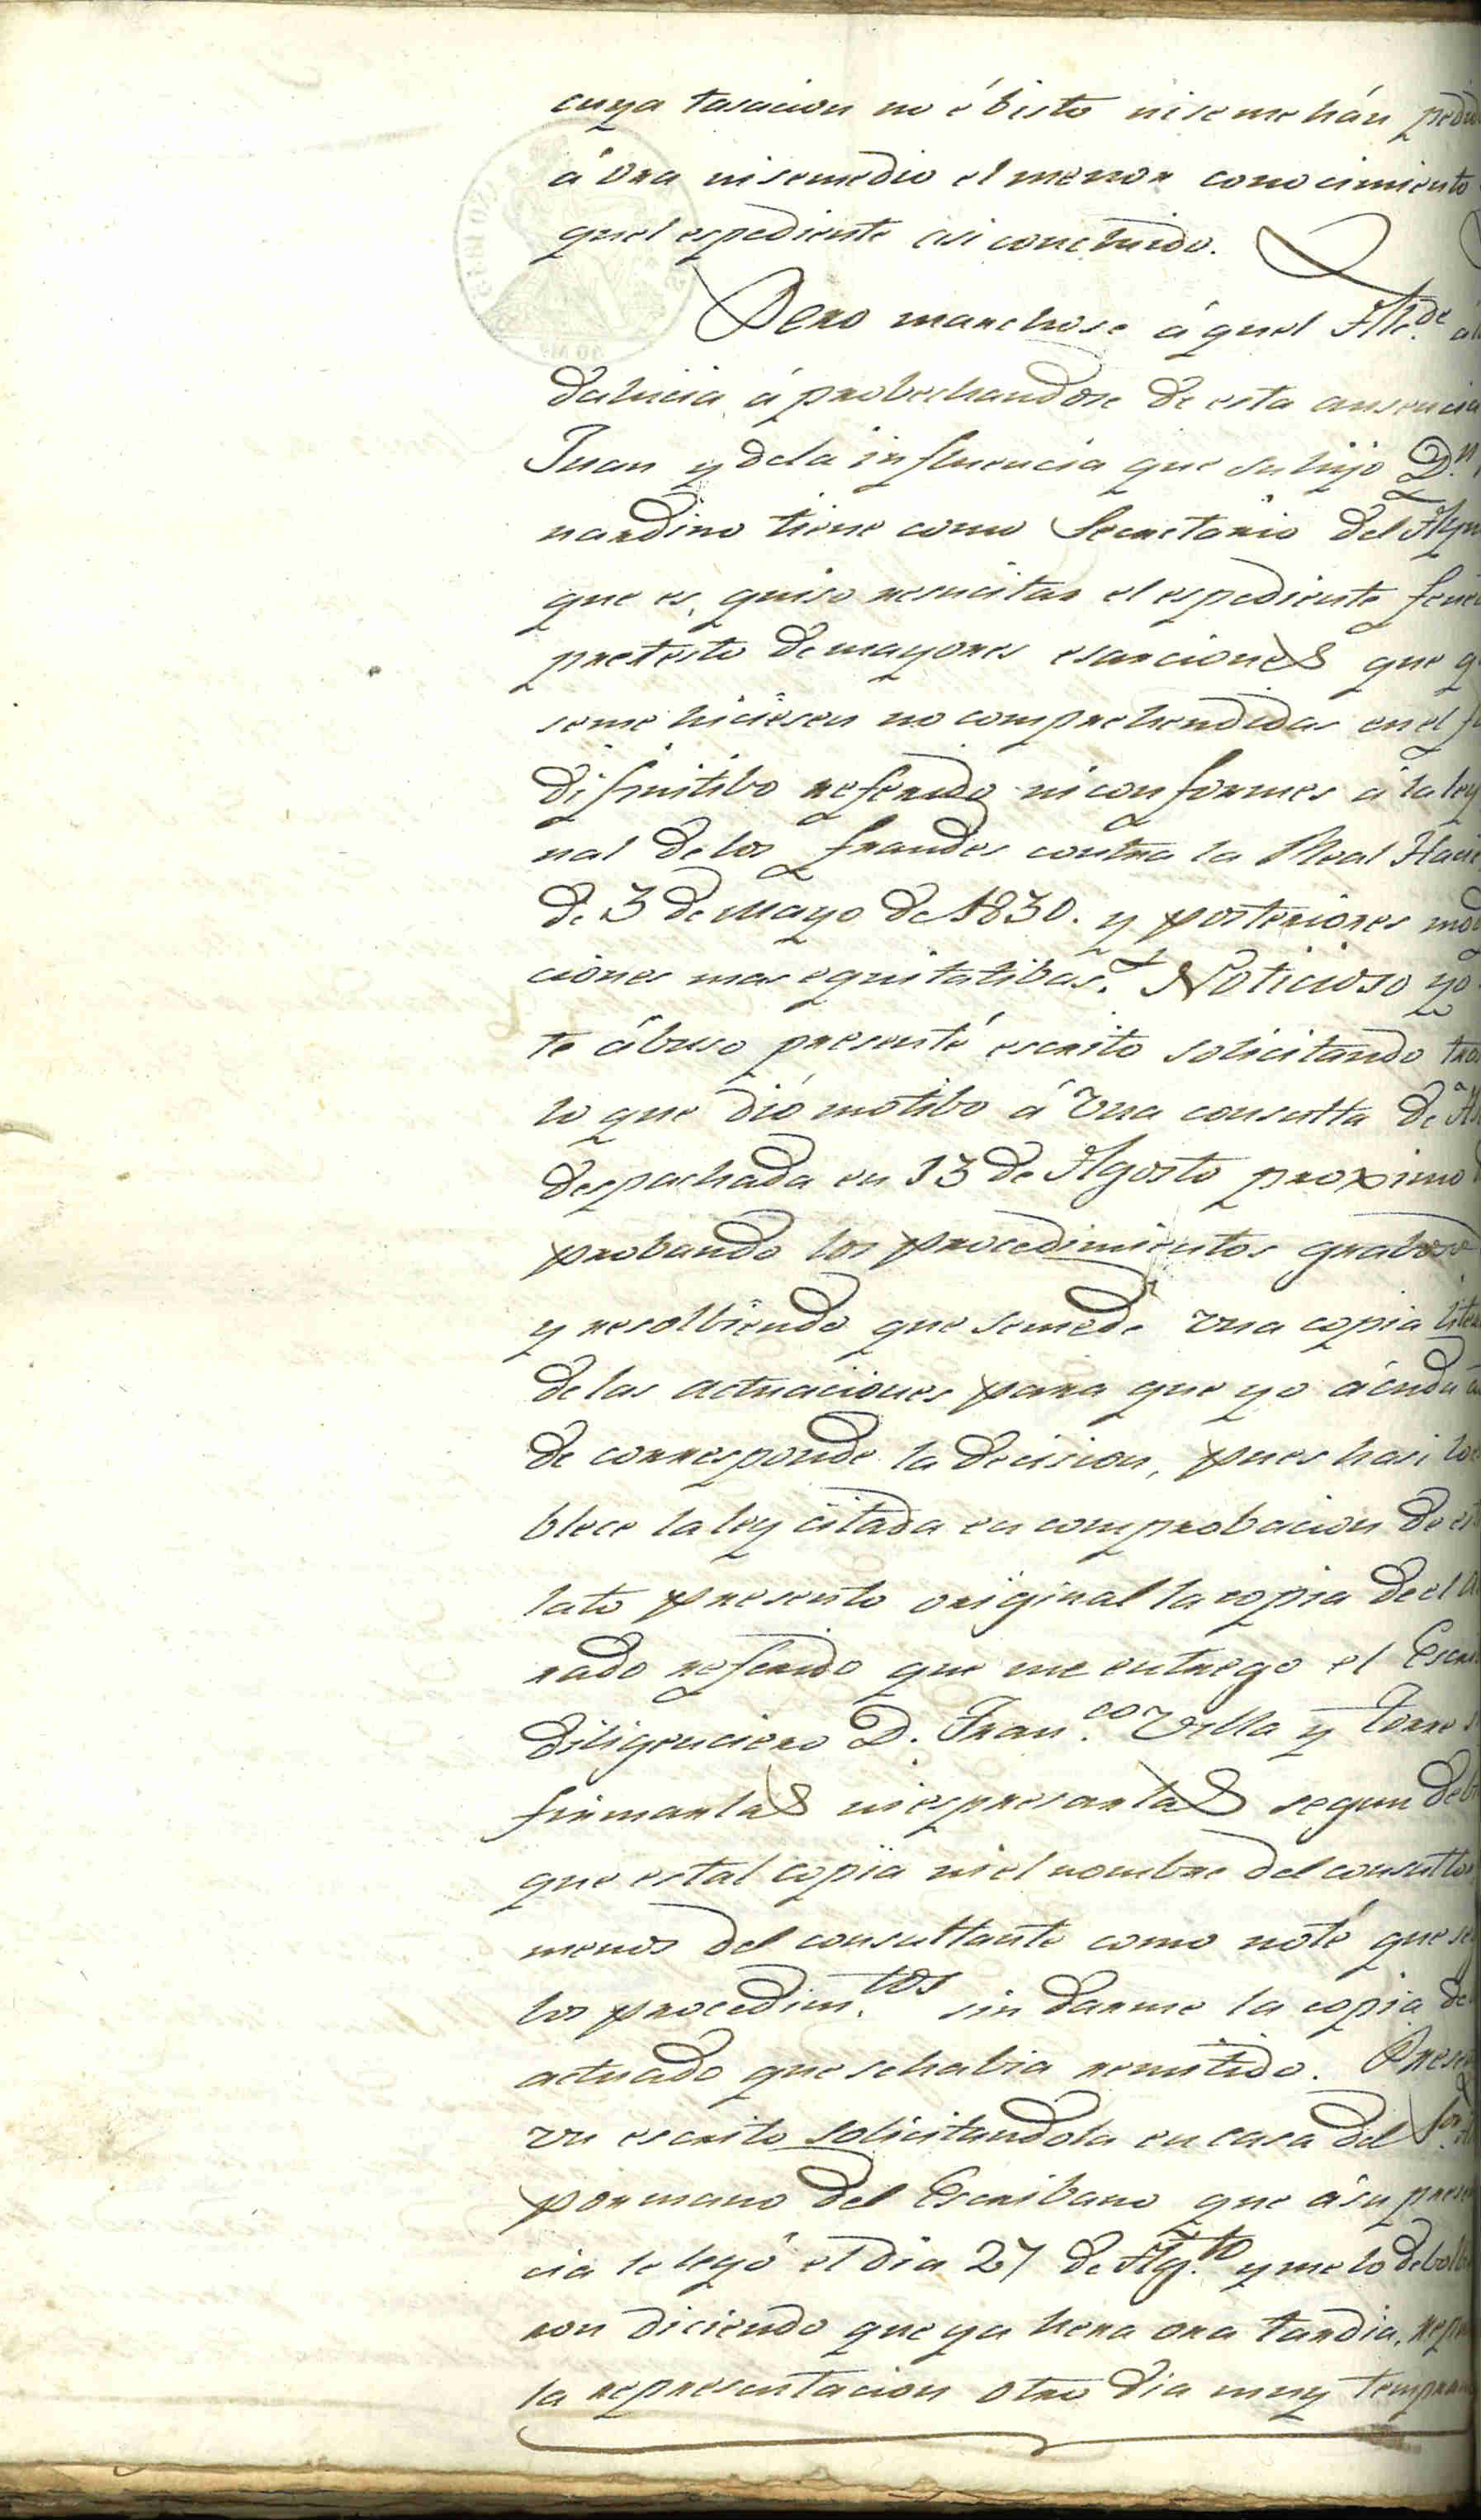 cuya tasacion no é bisto ni se me hán pedid
á ora ni se me dio el menor conocimiento
quel espediente asi concluido.
Pero marchose áquel Alc.de a
dalucia, áprobechandose de esta ausencia
Juan y dela influencia que su hijo D.n
nardino tiene como Secretario del Ayu
que es, quiso resucitar el espediente fene
pretesto de mayores esanciones que q
se me hiciesen no comprehendidas en el f
difinitibo referido ni conformes á la ley
nal de los fraudes contra la Real Haci
de 3 de Mayo de 1830. y posteriores mod
ciones mas equitatibas. Noticioso yo
te ábuso presenté escrito solicitando tras
lo que dió motibo á vna consulta de A
despachada en 13 de Agosto proximo
probando los procedimientos graboso
y resolbiendo que se me dé vna copia liter
de las actuaciones para que yo ácuda
de corresponde la decision, pues hasi lo
blece la ley citada en comprobacion de es
lato presento original la copia de el
rado referido que me entrego el Escri
diligenciero D. Fran.co Villa y Torres
firmarlas ni espresarlas segun deb
que es tal copia ni el nombre del consultor
menos del consultante como noté que se
los procedim.tos sin darme la copia de
actuado que se habia remitido. Prese
vn escrito solicitandola en casa del Sor.
por mano del Escribano que á su presen
cia le leyó el dia 27 de Ag.to y me lo debolbie
ron diciendo que ya hera ora tardia, repro
la representacion otro dia muy tempran